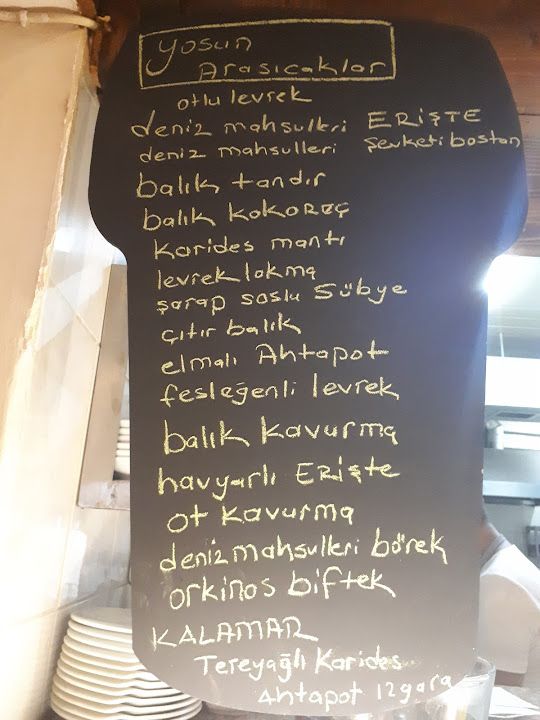 yosun
Arasıcaklar
otlu levrek
deniz mahsulleri ERİŞTE
deniz mahsulleri şevketibostan
balık tandır
balık kokoreç
Karides mantı
levrek lokma
şarap soslu Sübye
çıtır balık
elmalı Ahtapot
fesleğenli levrek
balık kavurma
havyarlı Erişte
ot kavurma
deniz mahsulleri börek
orkinos biftek
KALAMAR
Tereyağlı Karides
Ahtapot Izgara